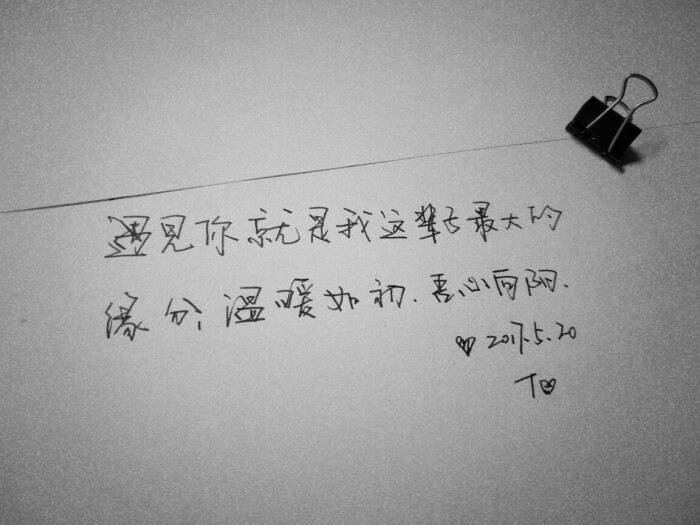 遇见你就是我这辈子最大的
缘分,温暖如初.吾心向阳.
♥ 2017.5.20
T♥